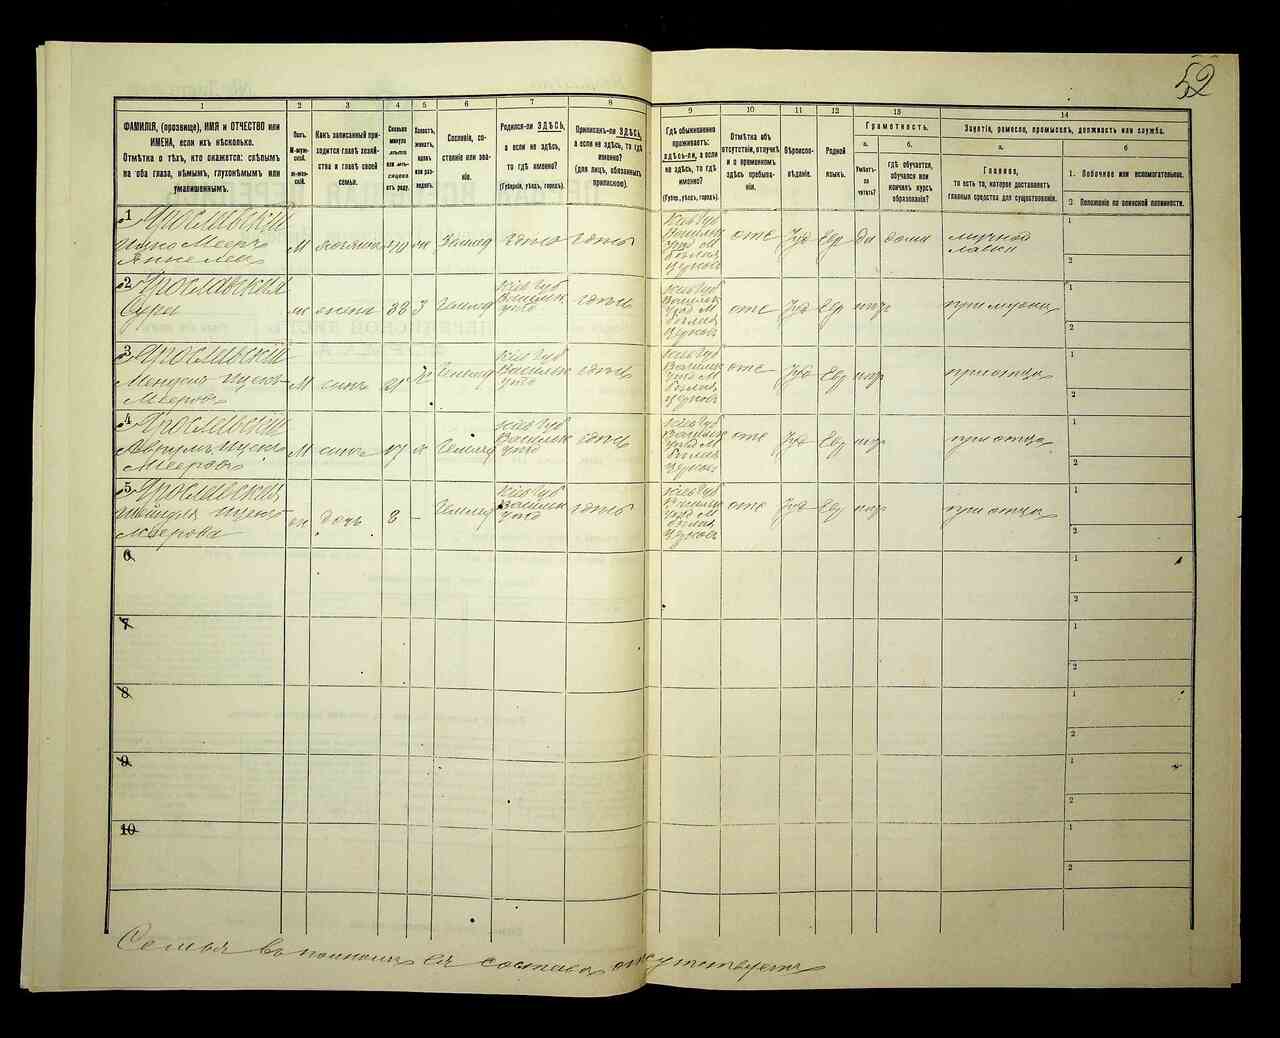 52
1
2
3
4
5
6
7
8
9
10
11
12
13
14
ФАМИЛІЯ, (прозвище), ИМЯ и ОТЧЕСТВО или
ИМЕНА, если ихъ нѣсколько.
Отмѣтка о тѣхъ, кто окажется: слѣпымъ
на оба глаза, нѣмымъ, глухонѣмымъ или
умалишеннымъ.
Полъ.
М-мужской.
Ж-женскій.
Какъ записанный при-
ходится главѣ хозяй-
ства и главѣ своей
семьи.
Сколько
минуло
лѣтъ
или мѣ-
сяцевъ
отъ роду.
Холостъ,
женатъ,
вдовъ
или раз-
веденъ.
Сословіе, со-
стояніе или зва-
ніе.
Родился-ли ЗДѢСЬ,
а если не здѣсь,
то гдѣ именно?
(Губернія, уѣздъ, городъ).
Приписанъ-ли ЗДѢСЬ,
а если не здѣсь, то гдѣ
именно?
(для лицъ, обязанныхъ
припискою).
Гдѣ обыкновенно
проживаетъ:
здѣсь-ли, а если
не здѣсь, то гдѣ
именно?
(Губер., уѣздъ, городъ).
Отмѣтка объ
отсутствіи, отлучкѣ
и о временномъ
здѣсь пребыва-
ніи.
Вѣроиспо-
вѣданіе.
Родной
языкъ.
Грамотность.
а.
б.
Умѣетъ-
ли
читать?
ГДѢ обучается,
обучался или
кончилъ курсъ
образованія?
Занятіе, ремесло, промыселъ, должность или служба.
а.
б
Главное,
то есть то, которое доставляетъ
главныя средства для существованія.
1. Побочное или вспомогательное.
2 Положеніе по воинской повинности.
1 Ярославскій
М
здѣсь
Кіев Губ
Васильк
Уѣзд М
Бѣлая
Церковь
отс
Іуд
Евр
да
дома
мучной
лавки
1
2
2 Ярославская
Сура
жена
38
З
Кіев Губ
Васильк
Уѣзд
здѣсь
Кіев Губ
Васильк
Уѣзд М
Бѣлая
Церковь
отс
Іуд
Евр
при мужѣ
1
2
3 Ярославскій
М
сынъ
21
Х
Кіев Губ
Васильк
Уѣзд
здѣсь
Кіев Губ
Васильк
Уѣзд М
Бѣлая
Церковь
отс
Іуд
Евр
при отцѣ
1
2
4 Ярославскій
М
сынъ
17
Х
Кіев Губ
Васильк
Уѣзд
здѣсь
Кіев Губ
Васильк
Уѣзд М
Бѣлая
Церковь
отс
Іуд
Евр
при отцѣ
1
2
5 Ярославская
Меерова
ж
дочь
8
-
Кіев Губ
Васильк
Уѣзд
здѣсь
Кіев Губ
Васильк
Уѣзд М
Бѣлая
Церковь
отс
Іуд
Евр
при отцѣ
1
2
6
1
2
7
1
2
8
1
2
9
1
2
10
1
2
Семья въ полномъ ея составѣ отсутствуетъ